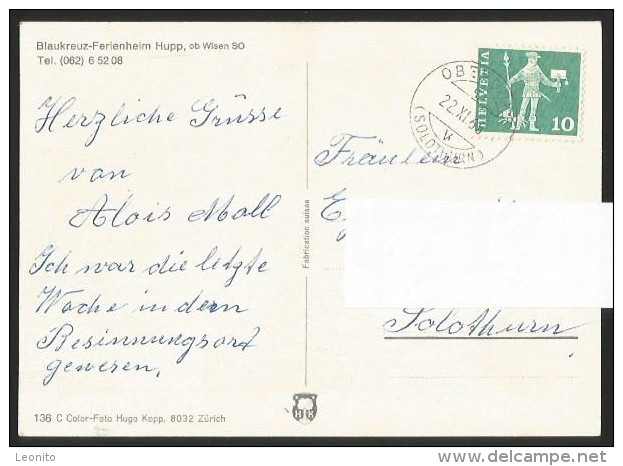 Blaukreuz-Ferienheim Hupp, ob Wisen SO
Tel. (062) 6 52 08
Herzliche Grüsse
von
Alois Moll
Ich war die letzte
Woche in dem
Besinnungsort
gewesen.
136 C Color-Foto Hugo Kopp, 8032 Zürich
Fabrication suisse
HELVETIA
10
22.XI
(SOLOTHURN)
Fräulein
Solothurn
HK
delcampe.net
Leonito